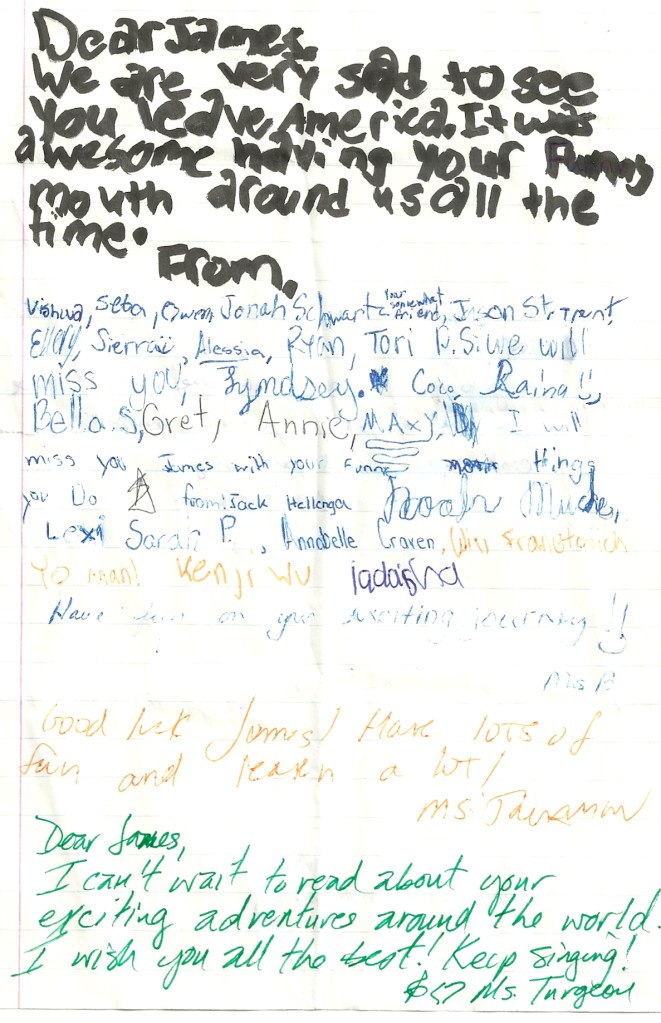 Dear James,
We are very sad to see
you leave America. It was
awesome having your Funny
mouth around us all the
time.
From,
Vishwa, Seba, Owen, Jonah Schwartz your somewhat friend, Jason St. Trent!
Elley, Sierra, Alessia, Ryan, Tori P.S. we will
miss you, Lyndsey. Coco, Raina!!,
Bella.S, Gret, Annie, MAXY, I will
miss you James with your Funny things
you Do from: Jack Hellenga Noah
Lexi Sarah P., Annabelle Craven,
Yo man! Kenji Wu
Have fun on your exciting journey!!
Mrs B
Good luck James! Have lots of
fun and learn a lot!
Ms.
Dear James,
I can't wait to read about your
exciting adventures around the world.
I wish you all the best! Keep singing!
Ms. Turgeon